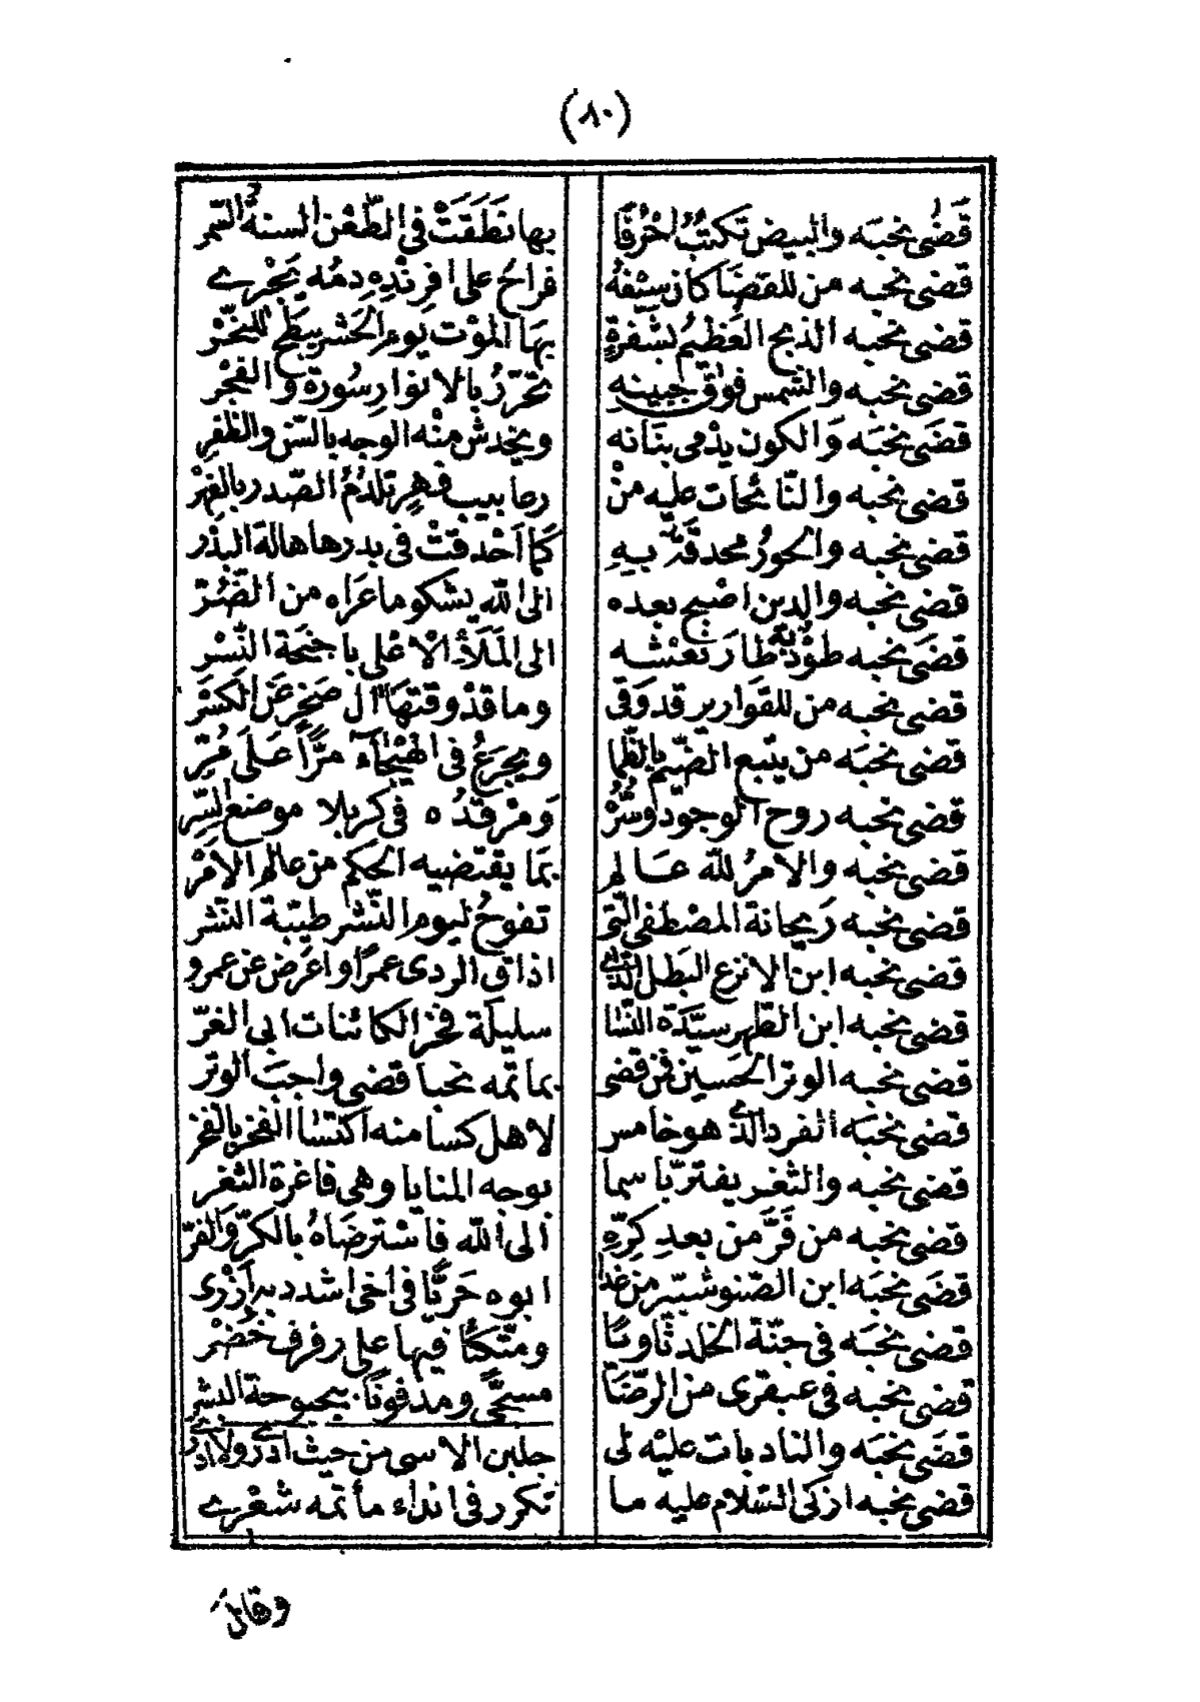 (٨٠)
قَضٰى نحبَه والبيض تكتبُ اَحْرُفًا بها نَطَقَتْ في الطّعْن السنةُ السّمر
قضى نحبه من للقضا كان سيْفهُ فراحَ على افرِنْدِهِ دمُه يَجْرے
قضى نحبه الذبح العَظيمُ بشفْرةٍ بهَا المَوْت يوم الحَشر يبطح للنّحْر
قضى نحبه والشمس فوقَ جَبينهِ تحَرّرُ بالانوارِ سُورةَ والفجْر
قضَى نحبَه وَالكون يدْمى بنَانه ويخدشُ منْه الوجه بالسّن والظفرِ
قضى نحبه والنّائحات عليه منْ رعابيب فهرٍ تلدُمُ الصّدر بالفِهْر
قضى نحبه والحورُ محدقَةٌ بهِ كمَا اَحْدقتْ في بدرها هالة البدْر
قضى نحبَه والدين اصْبح بعده الى اللّه يشكو ما عَرَاه من الضُرّ
قضَى نحبه طوْدٌ به طارَ نعْشه الى المَلَأِ الاعْلى باجنحَة النّسْر
قضى نحبه من للقوارير قد وَقَى وما قدْ وقتهَا ال صَخرٍ عَن الكَسْر
قضى نحبَه من يتبع الضّيم بالظّما ويجرَعُ في الهَيْجاۤء مرًّا عَلَى مُرّ
قضى نحبه روح الوجود وسُرّ وَمرْقدُه في كربلا موضع السِّر
قضى نحبه والامرُ للّه عَالم بمَا يقتضيه الحكم من عالم الامْر
قضى نحبه رَيحانة المصْطفى التّي تفوحُ ليوم النّشر طيّبة النّشر
قضى نحبه ابن الانزع البَطل الّذے اذاق الردى عمرًا واعرَض عن عمرو
قضى نحبه ابن الطّهر سيّدة النّسَا سليلَة فخر الكائنات ابى الغرّ
قضى نحبه الوتر الحَسين فمن قضى بماتمه نحبا قضى واجبَ الوتر
قضى نحبَه الفرد الذے هو خامس لاهل كسا منه اكتسَا الفخر بالفخر
قضى نحبه والثغر يفترّ باسما بوجه المنايا وهي فاغرة الثغر
قضى نحبه من فَرَّ من بعدِ كرّهِ الى اللّه فاسْترضَاهُ بالكرّ وَالفرّ
قضَى نحبَه ابن الصّنو شبّر من غدا ابوه حَريًّا في اخى اشدد به اَزْرى
قضى نحبَه في جنّة الخلد ثاويًا ومتّكئًا فيها على رفرف خُضْر
قضى نحبه في عبقرى من الرضَا مسجّى ومدفونًا ببحبوحة البشر
قضَى نحبَه والنادبات عليْه لى جلبن الاسى من حيث ادرے ولا ادرے
قضى نحبه ازكى السّلام عليه ما تكرر في انداء مأتمه شعْرے
وقائل